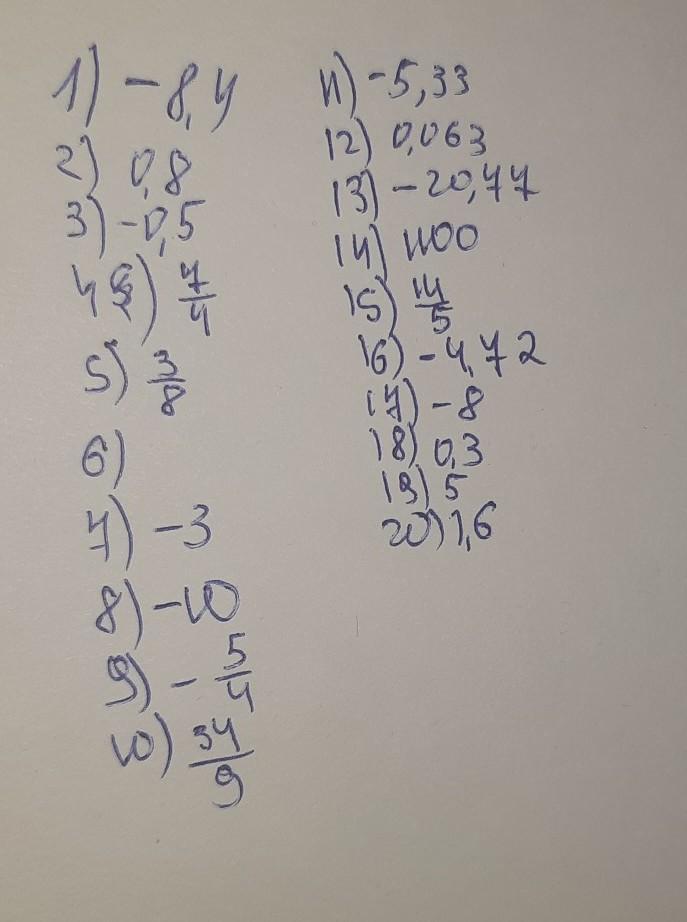 1) -8,4
2) 0,8
3) -0,5
4) 7/4
5) 3/8
6)
7) -3
8) -10
9) -5/4
10) 34/9
11) -5,33
12) 0,063
13) -20,77
14) 1100
15) 14/5
16) -4,72
17) -8
18) 0,3
19) 5
20) 1,6